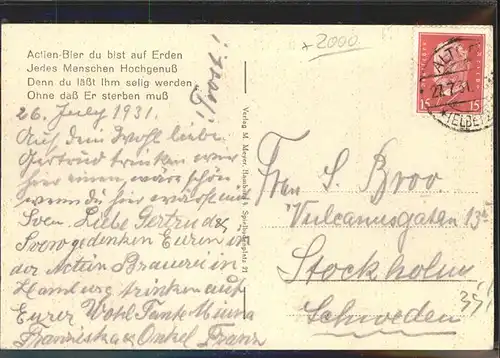 Actien-Bier du bist auf Erden
Jedes Menschen Hochgenuß
Denn du läßt Ihm selig werden
Ohne daß Er sterben muß
26. July 1931.
Auf dein Wohl liebe
Gertrud trinken wir
hier einen, wäre schön
wenn du hier wärst mit
Sven. Liebe Gertrud &
Sven gedenken Euren in
der Actien Brauerei in
Hamburg trinken auf
Eurer Wohl Tante Minna
Franziska & Onkel Franz
Prost!!
2000
Verlag M. Meyer, Hamburg 4, Spielbudenplatz 21
15 15
27.7.31.
Frau S. Broo
Vulcanusgatan 13
Stockholm
Schweden